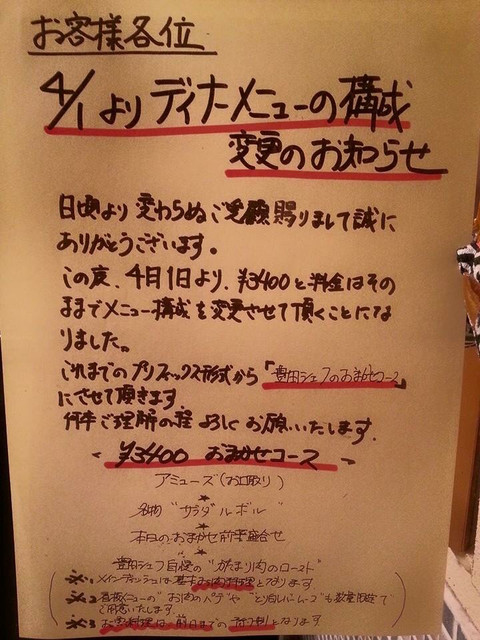 お客様各位
4/1よりディナーメニューの構成
変更のお知らせ
日頃より変わらぬご愛顧賜りまして誠に
ありがとうございます。
この度、4月1日より、¥3400と料金はその
ままでメニュー構成を変更させて頂くことにな
りました。
これまでのプリフィックス形式から「豊田シェフのおまかせコース」
にさせて頂きます。
何卒ご理解の程よろしくお願いいたします。
~ ¥3400 おまかせコース ~
アミューズ(お口取り)
★
名物"サラダルボル"
★
本日のおまかせ前菜盛合せ
★
豊田シェフ自慢の"かたまり肉のロースト"
※1 メインディッシュは基本お肉料理となります
※2 看板メニューの"お肉のパテ"や"とりレバームース"も数量限定で
ご用意いたします。
※3 お魚料理は前日までの予約制となります